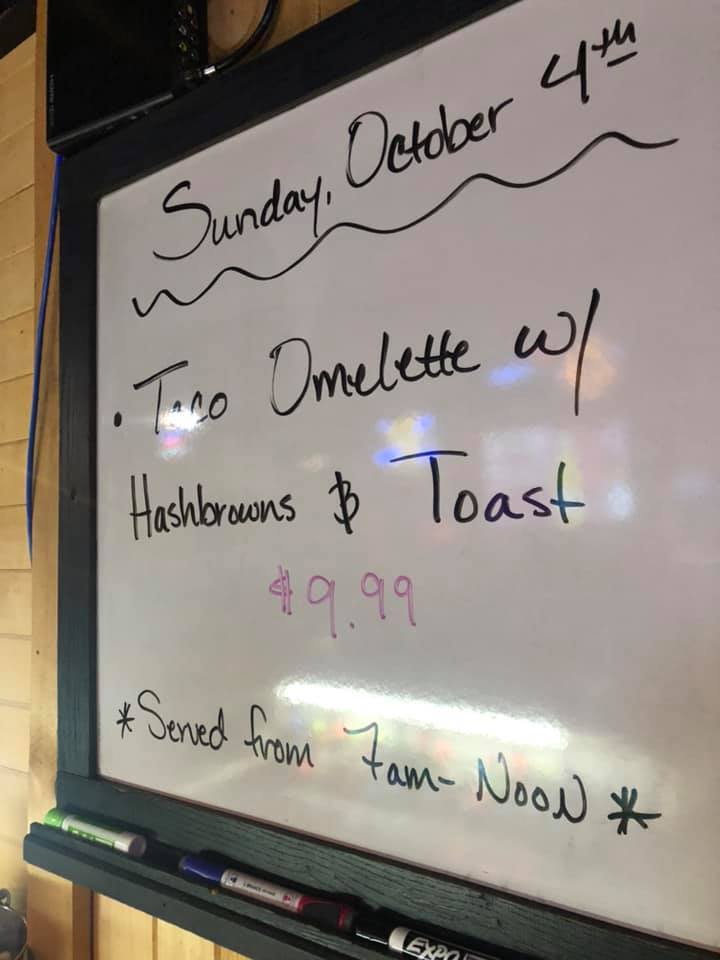 Sunday, October 4th
• Taco Omelette w/
Hashbrowns & Toast
$9.99
*Served from 7am-Noon*
EXPO